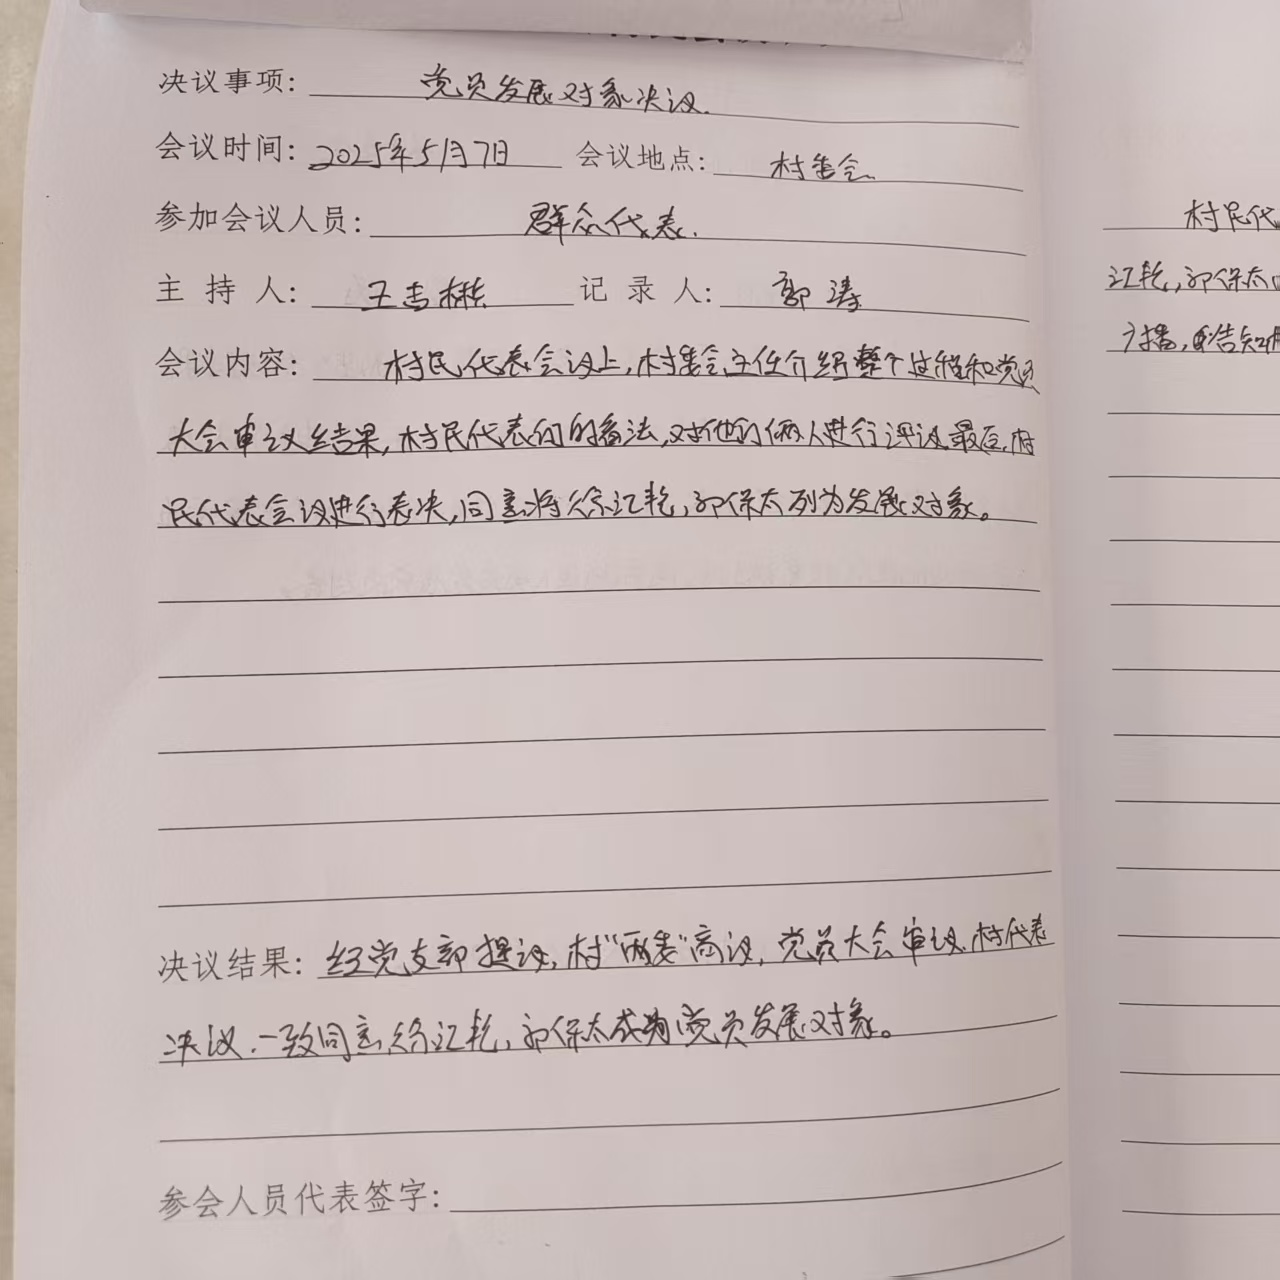 决议事项: 党员发展对象决议.
会议时间: 2025年5月7日 会议地点: 村委会
参加会议人员: 群众代表.
主持人: 王吉 记录人: 郭涛
会议内容: 村民代表会议上,村委会主任介绍整个过程和党员
大会审议结果,村民代表们的看法,对他们俩人进行评议.最后,村
民代表会议进行表决,同意将徐江乾,郭保太列为发展对象。
决议结果: 经党支部提议,村"两委"商议,党员大会审议.村代表
决议.一致同意徐江乾,郭保太成为党员发展对象。
参会人员代表签字:
村民代
江乾,郭保太
广播,告知